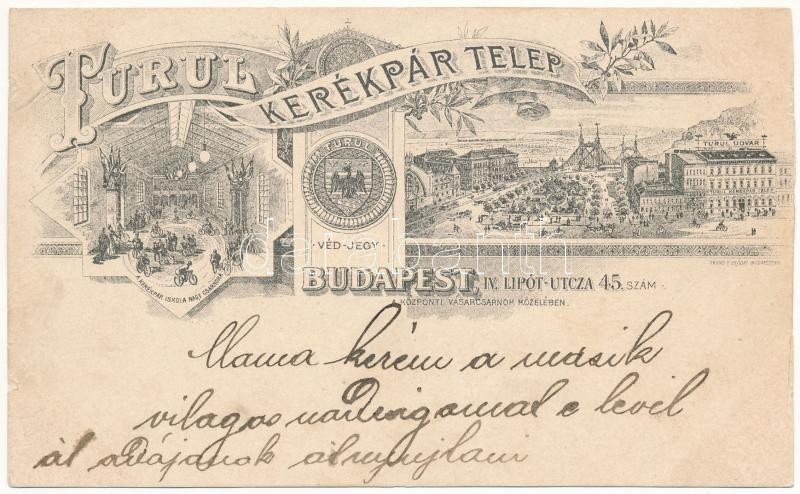 TURUL
KERÉKPÁR TELEP
TURUL
VÉD-JEGY
TURUL UDVAR
KERÉKPÁR TELEP
A KERÉKPÁR ISKOLA NAGY CSARNOKA
BUDAPEST, IV. LIPÓT-UTCZA 45. SZÁM
A KÖZPONTI VÁSÁRCSARNOK KÖZELÉBEN.
Mama kérem a másik
világos a levél
át átnyujtani
darabanth.com